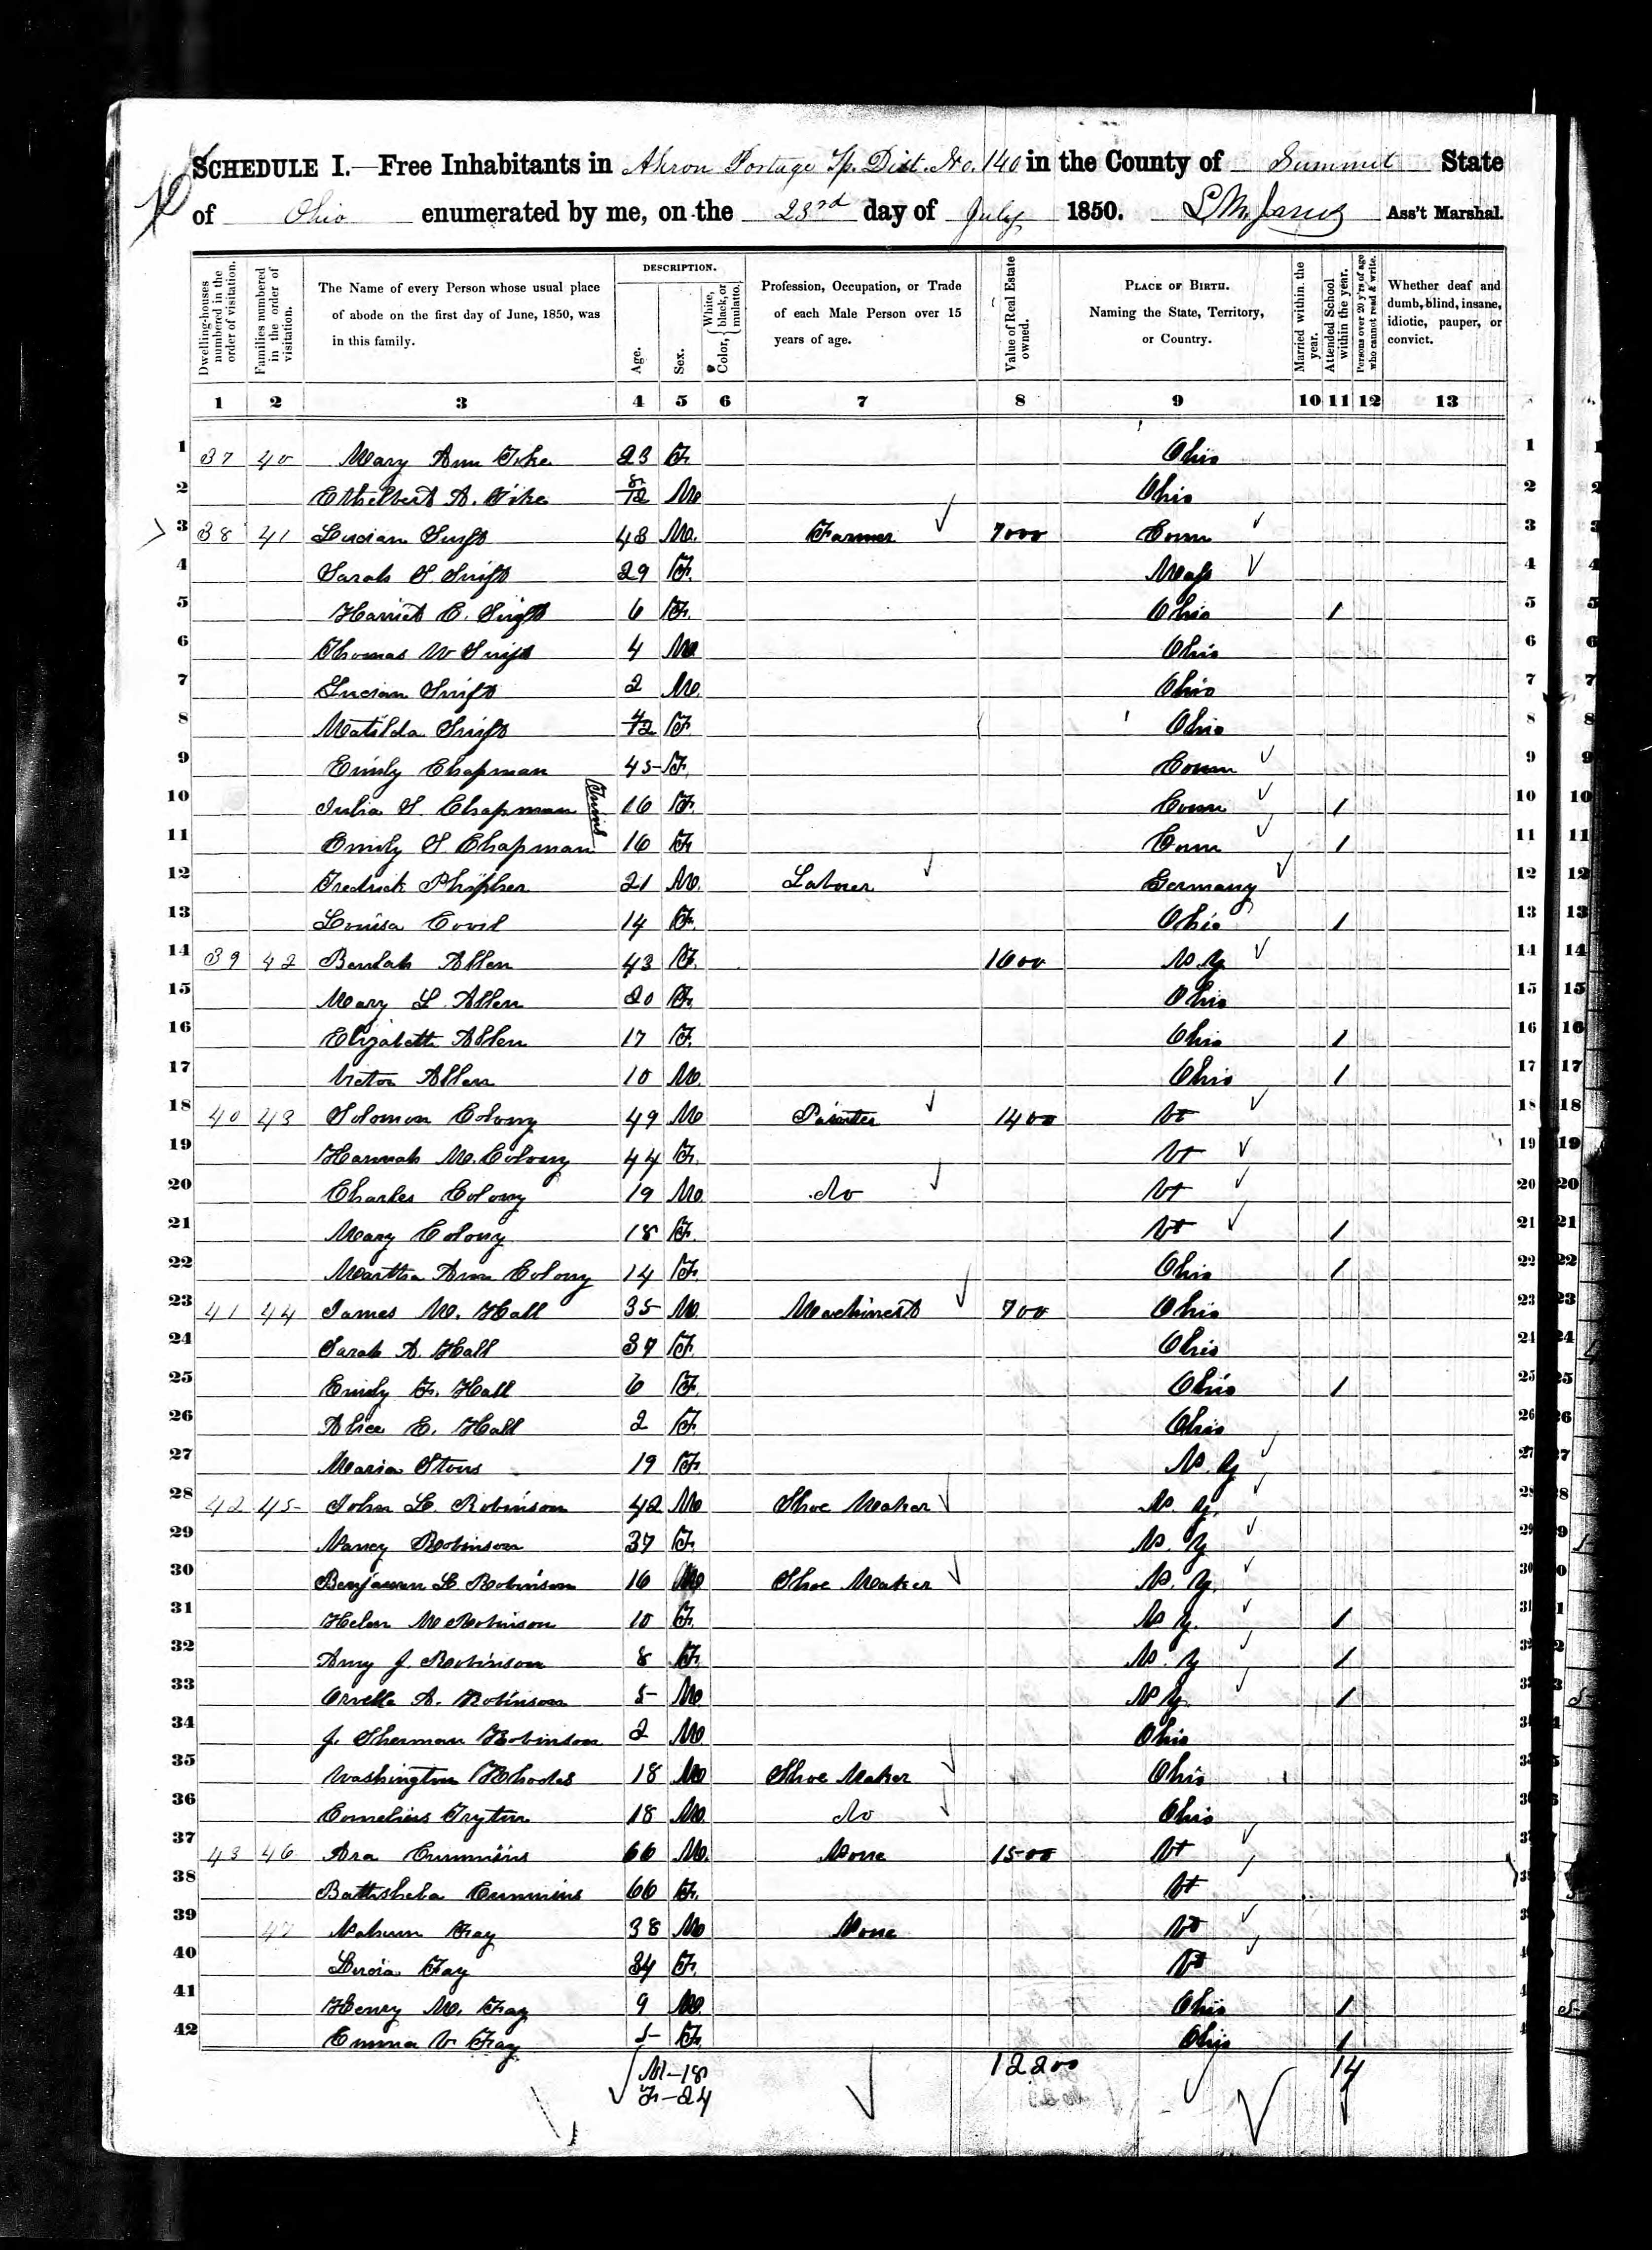 SCHEDULE I.—Free Inhabitants in Akron Portage Tp. Dist. No. 140 in the County of Summit State
of Ohio enumerated by me, on the 23rd day of July 1850. Ass't Marshal.
Dwelling-houses numbered in the order of visitation.
Families numbered in the order of visitation.
The Name of every Person whose usual place of abode on the first day of June, 1850, was in this family.
DESCRIPTION.
Age.
Sex.
Color, { White, black, or mulatto.
Profession, Occupation, or Trade of each Male Person over 15 years of age.
Value of Real Estate owned.
PLACE OF BIRTH. Naming the State, Territory, or Country.
Married within the year.
Attended School within the year.
Persons over 20 y'rs of age who cannot read & write.
Whether deaf and dumb, blind, insane, idiotic, pauper, or convict.
1 2 3 4 5 6 7 8 9 10 11 12 13
1 37 40 Mary Ann Fike 23 F. Ohio 1
2 Ethelbert A. Fike 8/12 M Ohio 2
3 38 41 Lucian Swift 48 M. Farmer 7000 Conn 3
4 Sarah S Swift 29 F. Mass 4
5 Harriet E. Swift 6 F. Ohio 1 5
6 Thomas W Swift 4 M Ohio 6
7 Lucian Swift 2 M. Ohio 7
8 Matilda Swift 4/12 F. Ohio 8
9 Emily Chapman 45 F. Conn 9
10 Julia S. Chapman Twins 16 F. Conn 1 10
11 Emily S. Chapman 16 F. Conn 1 11
12 Fredrick 21 M. Laborer Germany 12
13 Louisa Covil 14 F. Ohio 1 13
14 39 42 Beulah Allen 43 F. 1600 N.Y 14
15 Mary L. Allen 20 F. Ohio 15
16 Elizabeth Allen 17 F. Ohio 1 16
17 Victor Allen 10 M. Ohio 1 17
18 40 43 Solomon Colony 49 M Painter 1400 Vt 18
19 Hannah M. Colony 44 F. Vt 19
20 Charles Colony 19 M. do Vt 20
21 Mary Colony 18 F. Vt 1 21
22 Martha Ann Colony 14 F. Ohio 1 22
23 41 44 James M. Hall 35 M. Machinest 700 Ohio 23
24 Sarah A. Hall 37 F. Ohio 24
25 Emily F. Hall 6 F. Ohio 1 25
26 Alice E. Hall 2 F. Ohio 26
27 Maria 19 F. N. Y 27
28 42 45 John L. Robinson 42 M Shoe Maker N. Y. 28
29 Nancy Robinson 37 F. N. Y 29
30 Benjamin L. Robinson 16 M Shoe Maker N. Y. 30
31 Helen M Robinson 10 F. N Y. 1 31
32 Amy J. Robinson 8 F. N. Y 1 32
33 Orvelle A. Robinson 5 M N Y. 1 33
34 J. Sherman Robinson 2 M Ohio
35 Washington Rhodes 18 M Shoe Maker Ohio
36 Cornelius 18 M. do Ohio
37 43 46 Cummins 66 M. None 1500 Vt
38 Bathsheba Cummins 66 F. Vt
39 47 Nahum Fay 38 M None Vt
40 Lucia Fay 34 F. Vt
41 Henry M. Fay 9 M. Ohio 1
42 Emma V. Fay 5 F. Ohio 1
M-18 12200 14
F-24